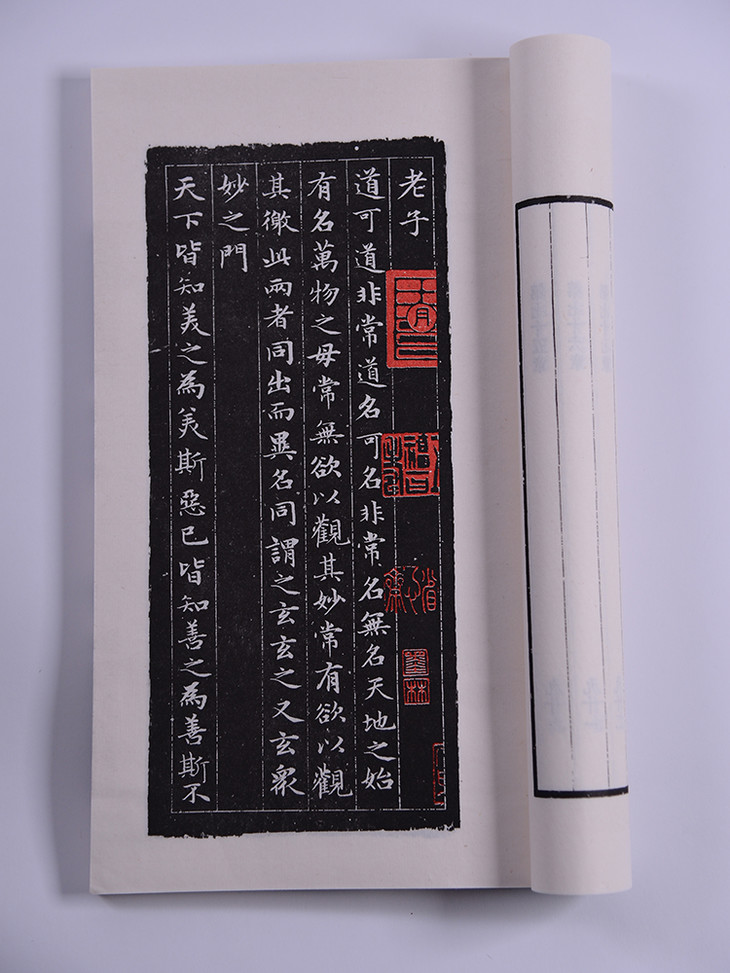 老子
墨林
道可道非常道名可名非常名無名天地之始
有名萬物之母常無欲以觀其妙常有欲以觀
其徼此兩者同出而異名同謂之玄玄之又玄衆
妙之門
天下皆知美之為美斯惡已皆知善之為善斯不